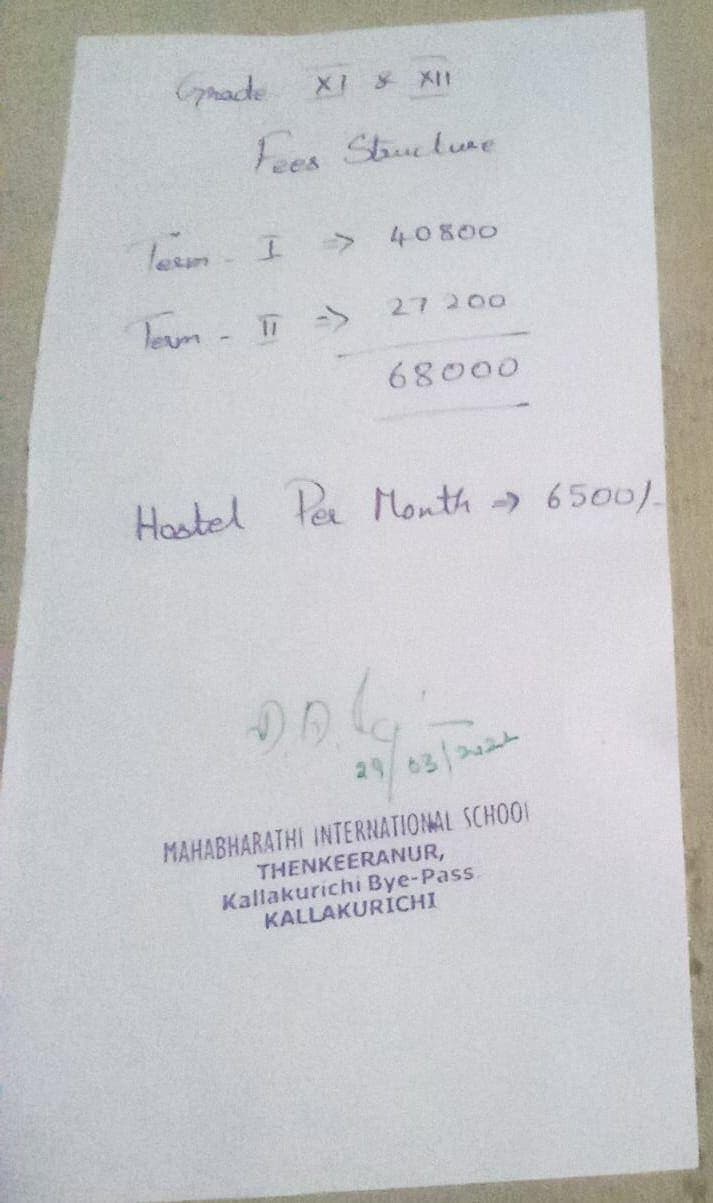 Grade XI & XII
Fees Structure
Term - I => 40800
Term - II => 27200
68000
Hostel Per Month => 6500/-
29/03/2022
MAHABHARATHI INTERNATIONAL SCHOOL
THENKEERANUR,
Kallakurichi Bye-Pass
KALLAKURICHI